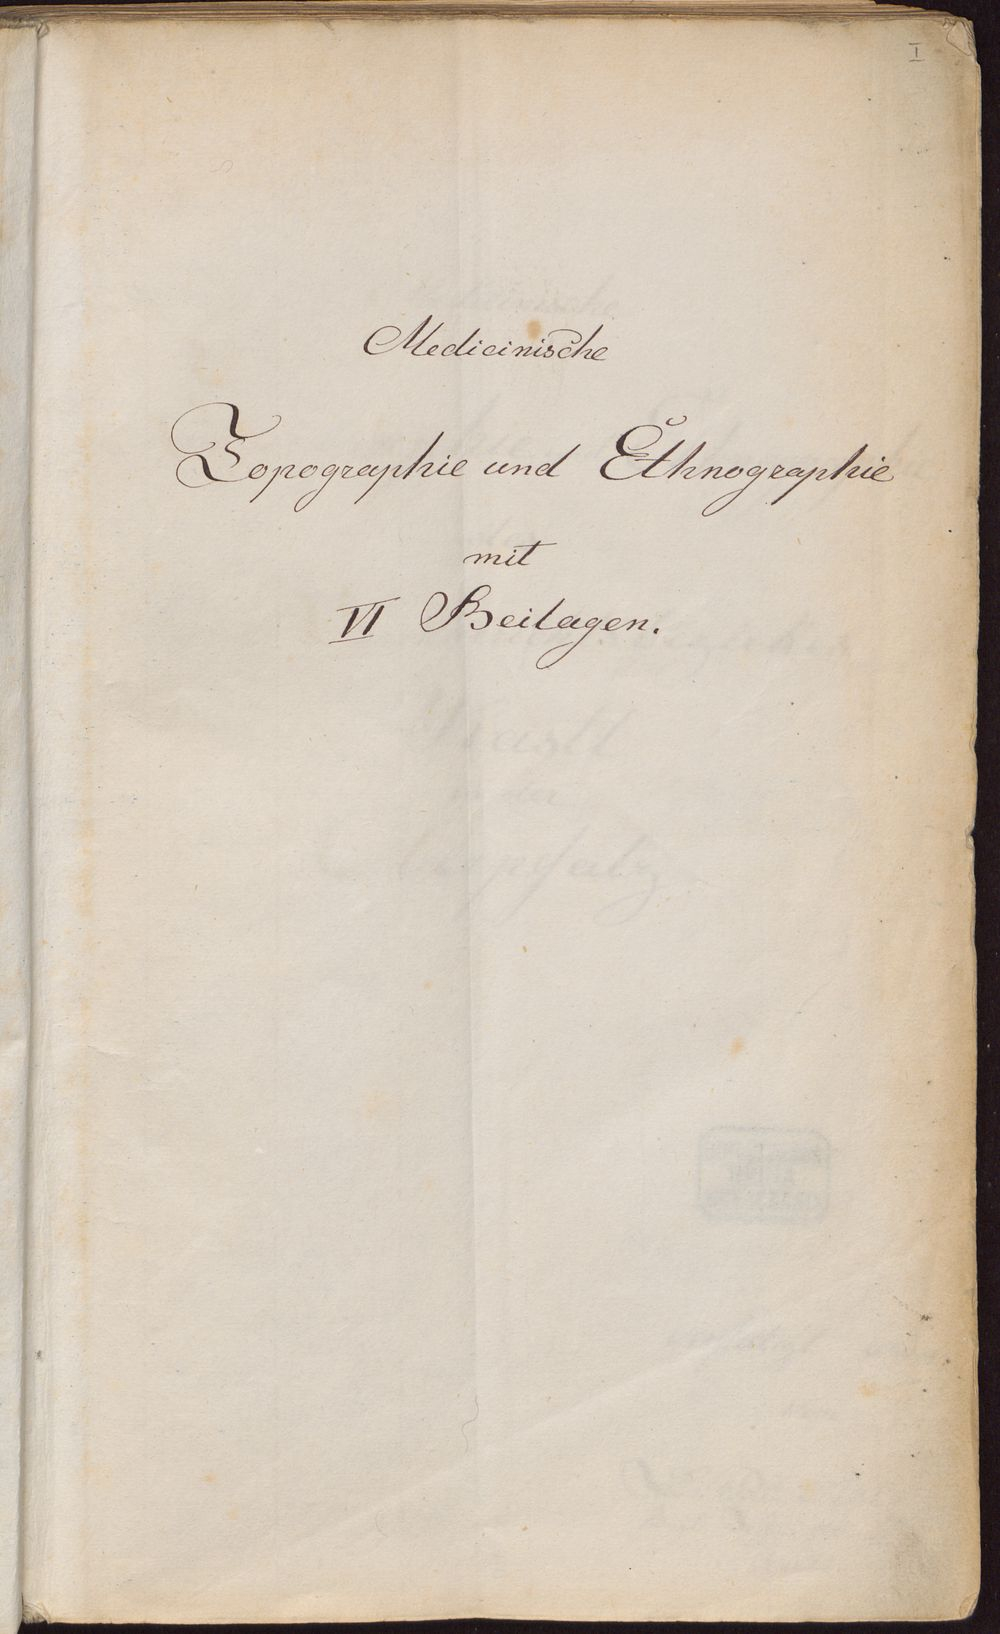 I
Medicinische
Topographie und Ethnographie
mit
VI Beilagen.